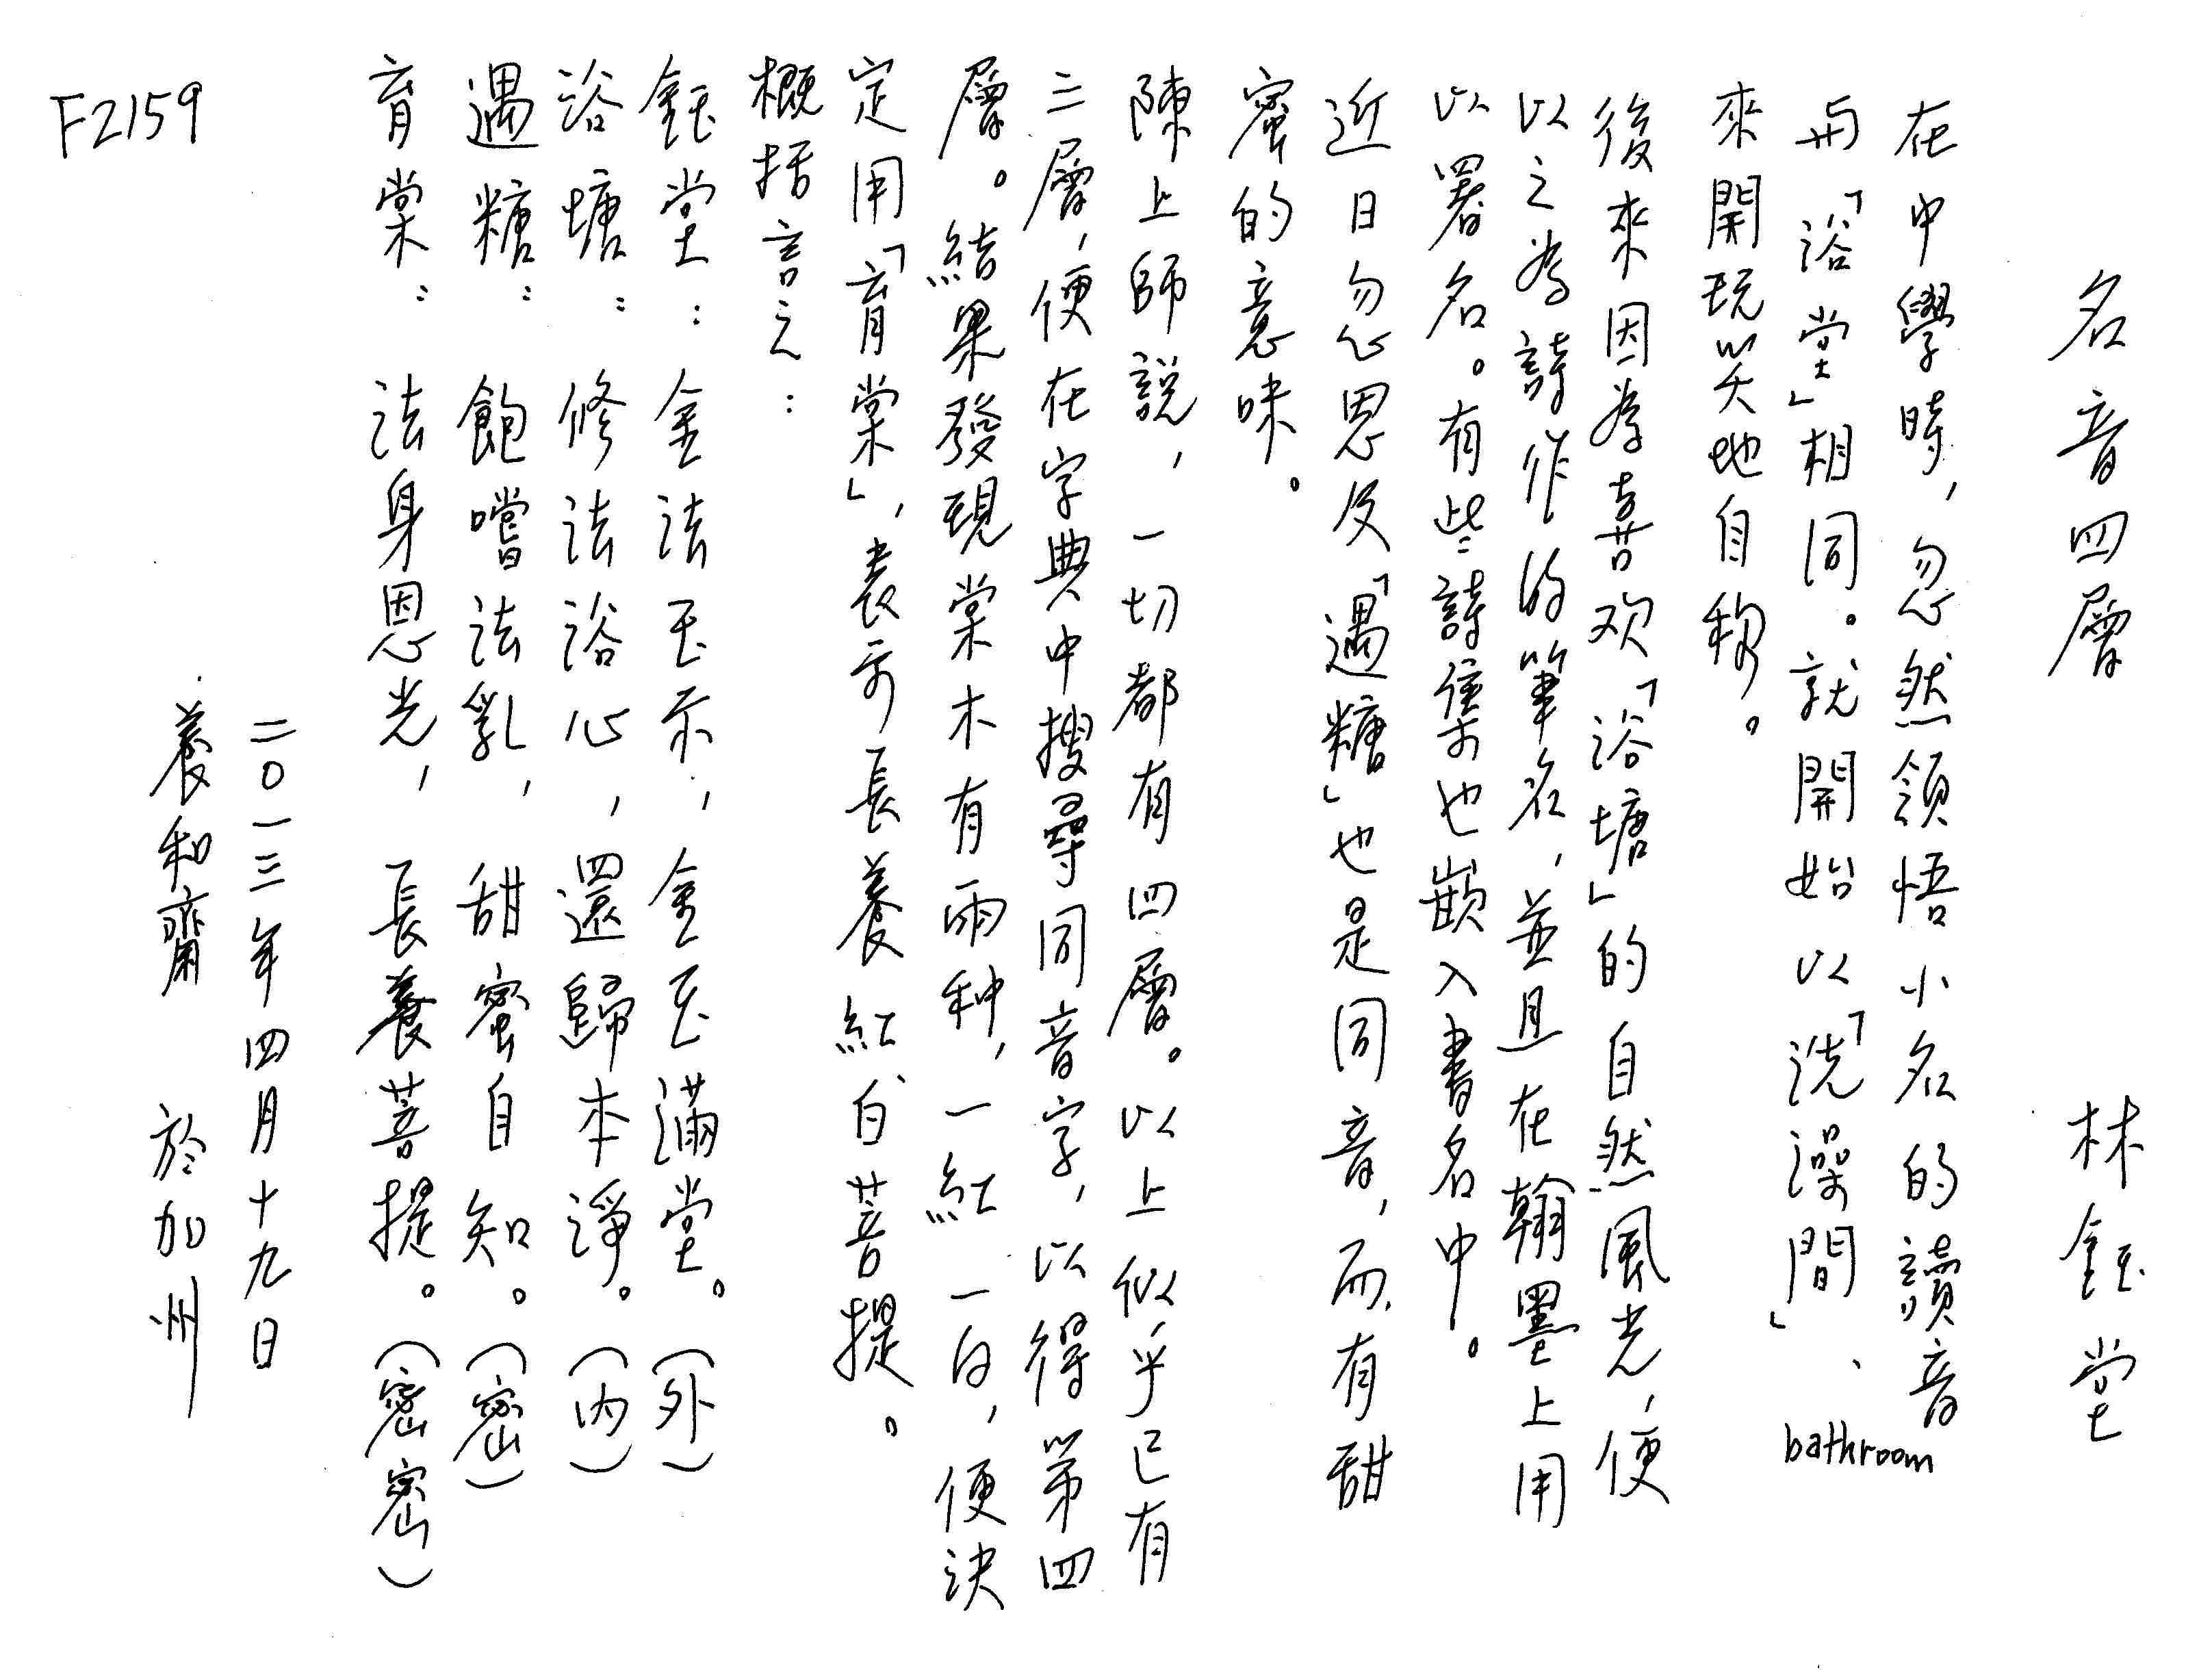 名音四層　林鈺堂
在中學時，忽然領悟小名的讀音
與「浴堂」相同。就開始以「洗澡間」、bathroom
來開玩笑地自稱。
後來因為喜欢「浴塘」的自然風光，便
以之為詩作的筆名，並且在翰墨上用
以署名。有些詩集也嵌入書名中。
近日忽思及「遇糖」也是同音，而有甜
蜜的意味。
陳上師說，一切都有四層。以上似乎已有
三層，便在字典中搜尋同音字，以得第四
層。結果發現棠木有兩种，一紅一白，便決
定用「育棠」，表示長養紅白菩提。
概括言之：
鈺堂：金法玉示，金玉滿堂。（外）
浴塘：修法浴心，還歸本淨。（内）
遇糖：飽嚐法乳，甜蜜自知。（密）
育棠：法身恩光，長養菩提。（密密）
二〇一三年四月十九日
養和齋　於加州
F2159